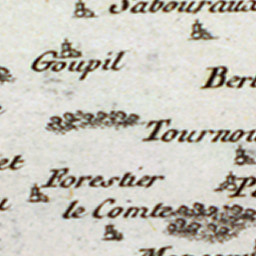 Sabouraux
Goupil
Ber
Tournou
et
Forestier
le Comte